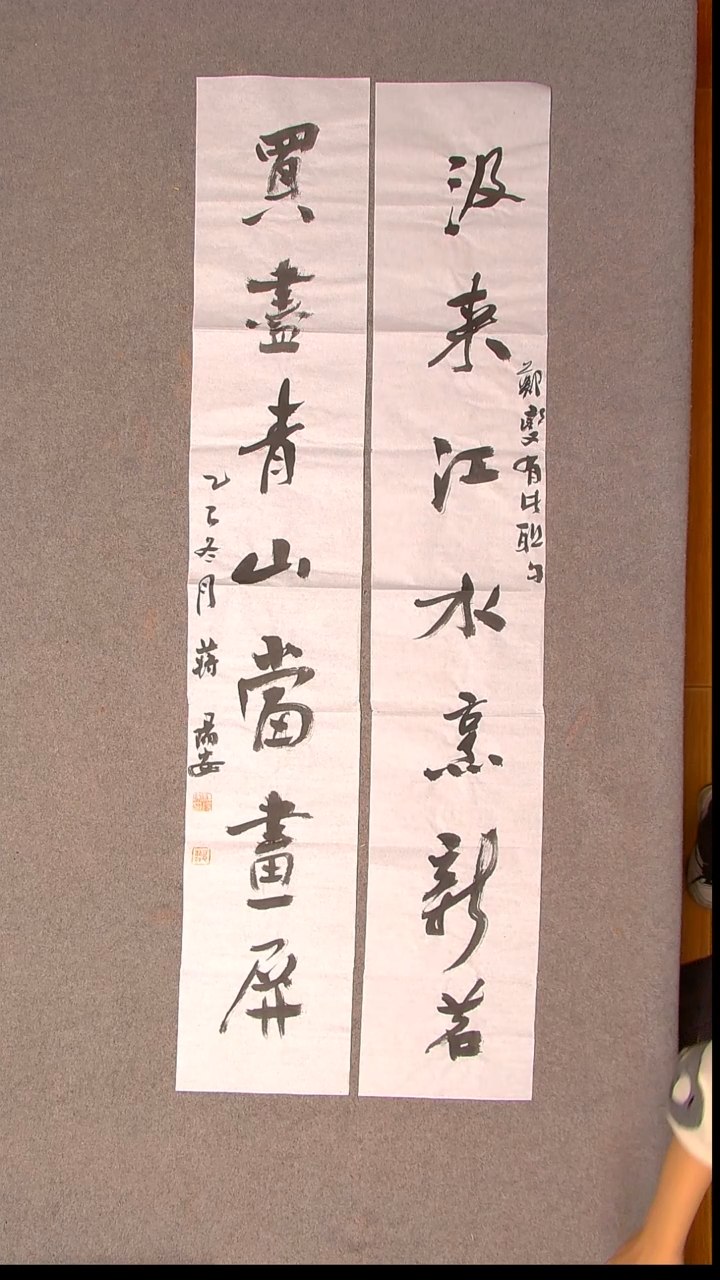 汲来江水烹新茗
鄭燮有此联句
買盡青山當畫屏
乙巳冬月
蒋